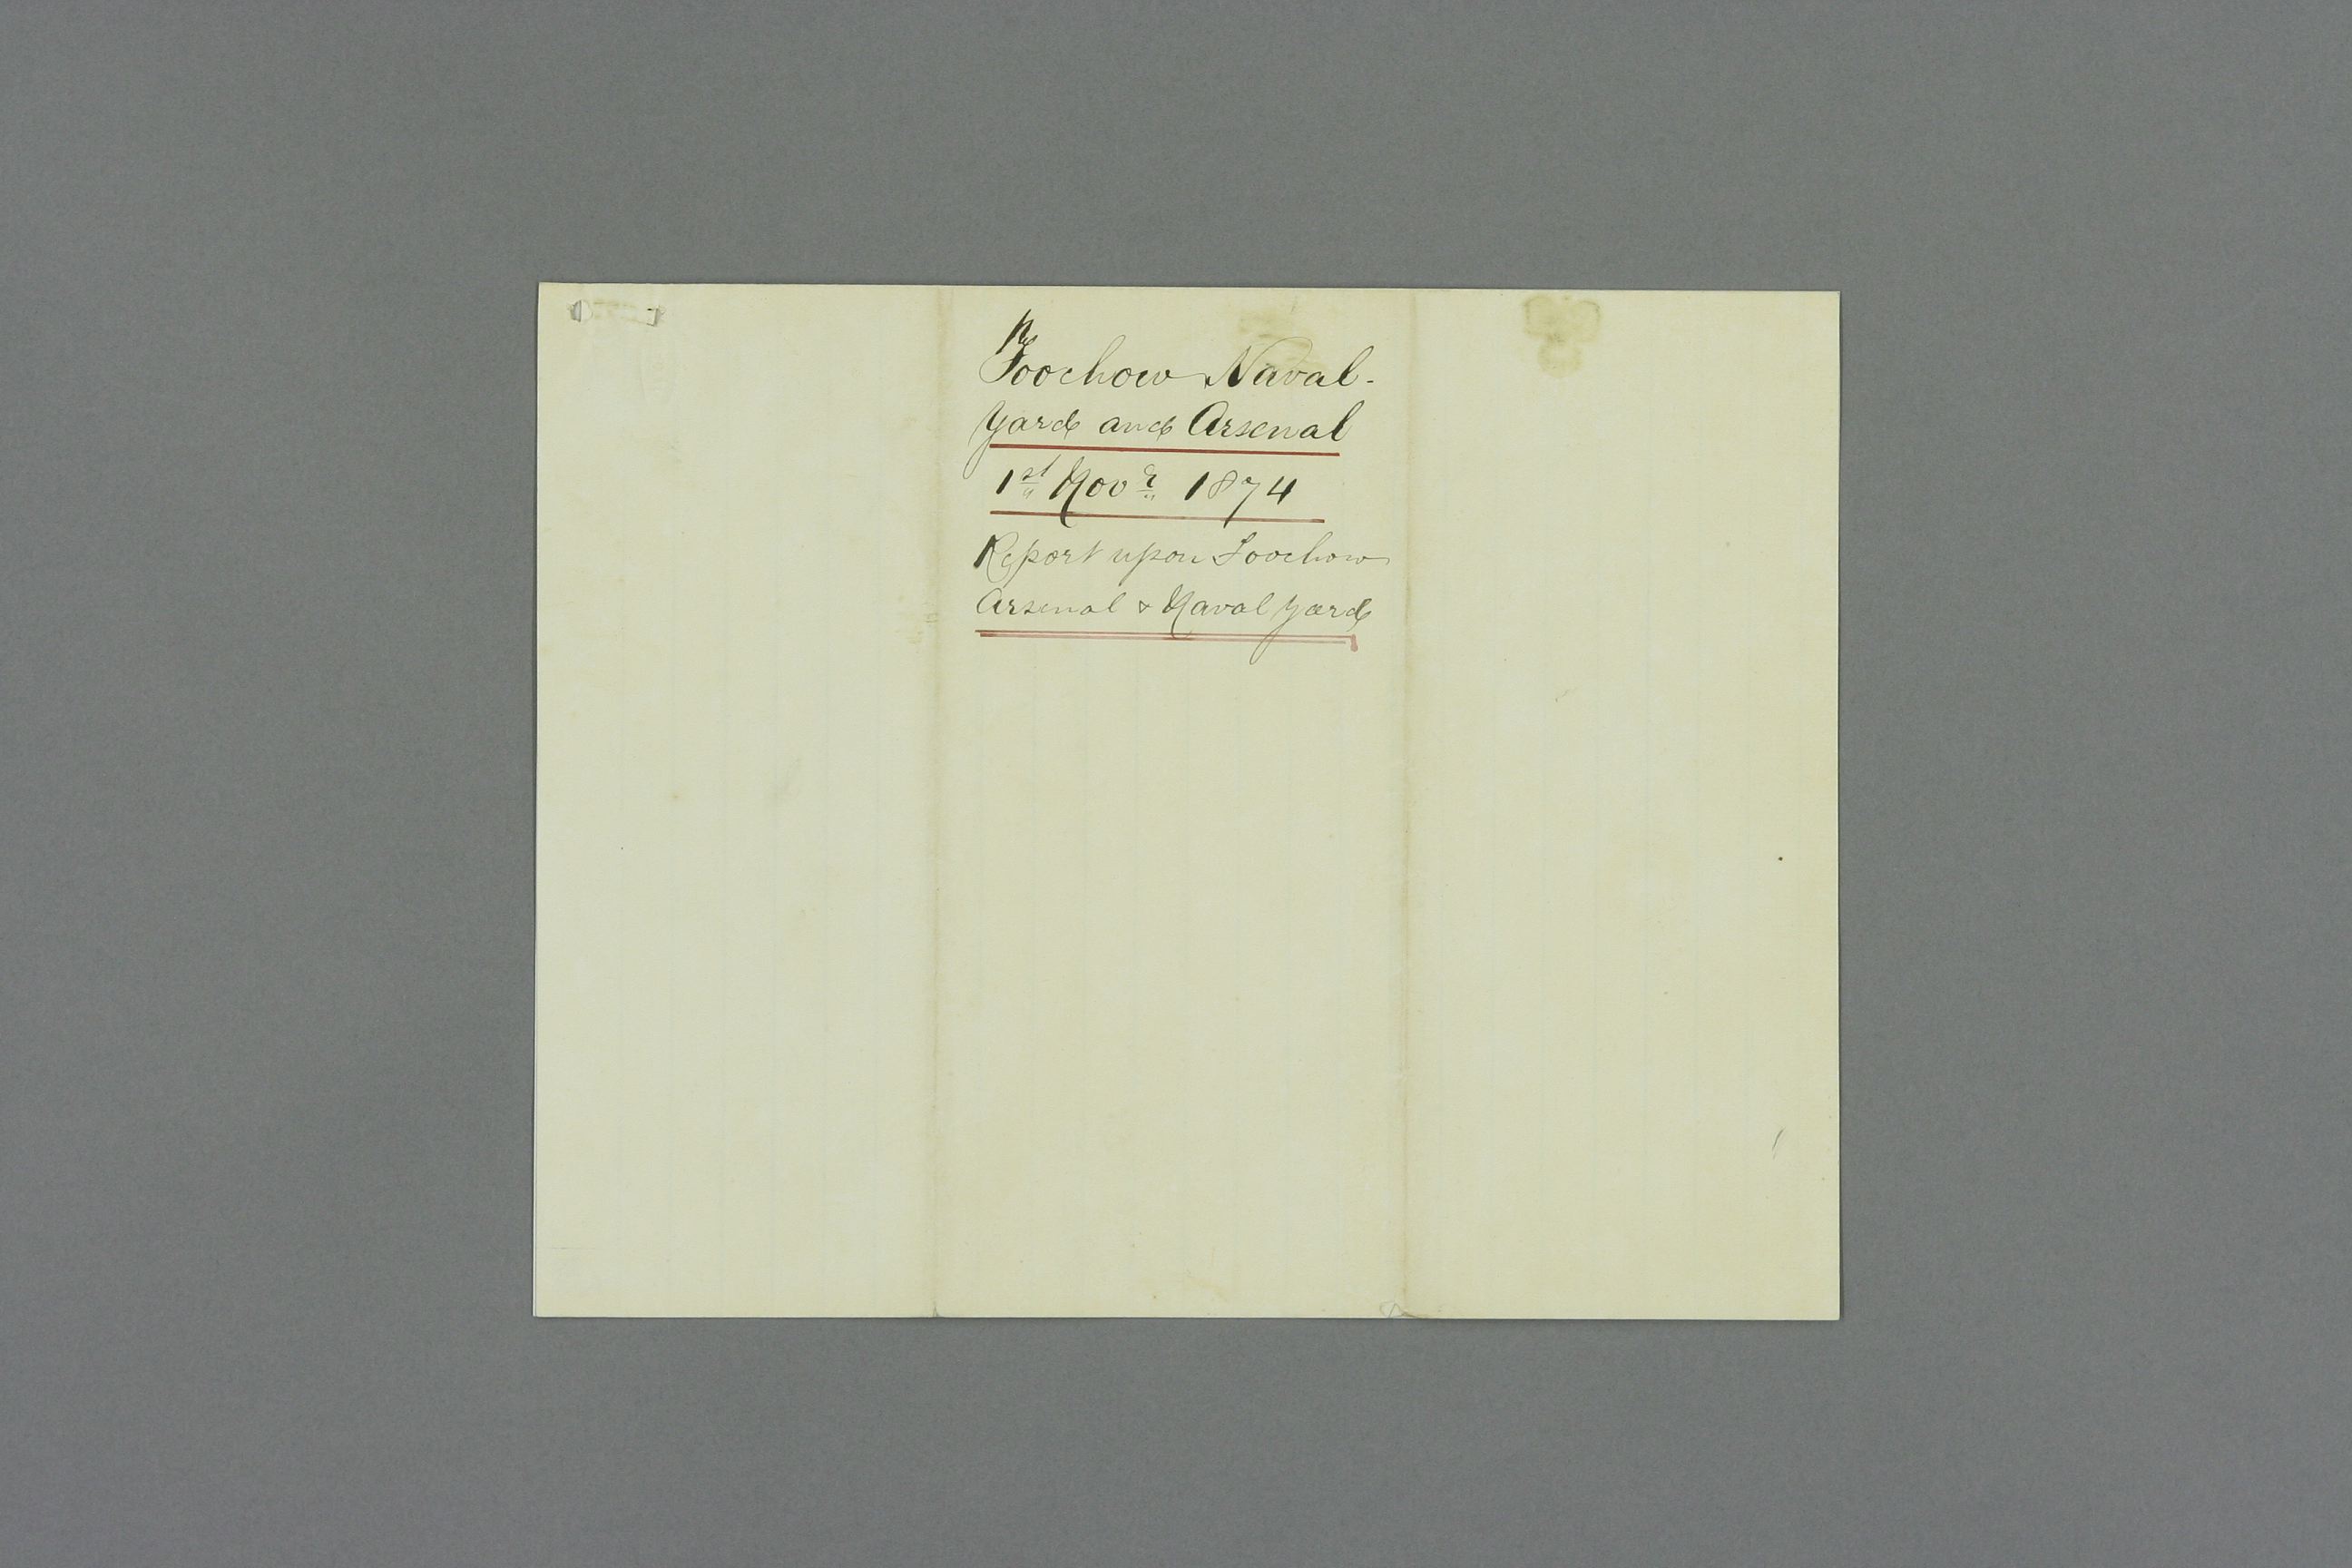 Foochow Naval-
Yard and Arsenal
1st Novr 1874
Report upon Foochow
Arsenal & Naval Yard